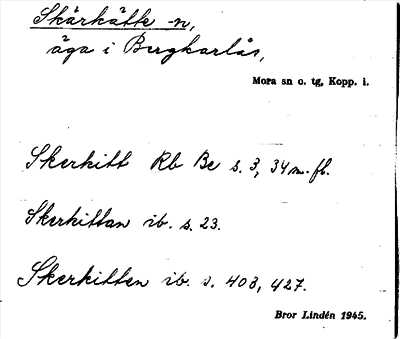 Skärkätte -n,
äga i Bergkarlås,
Mora sn o. tg, Kopp. l.
Skerkitt Rb Be s. 3, 34 m. fl.
Skerkittan ib. s. 23.
Skerkitten ib. s. 403, 427.
Bror Lindén 1945.